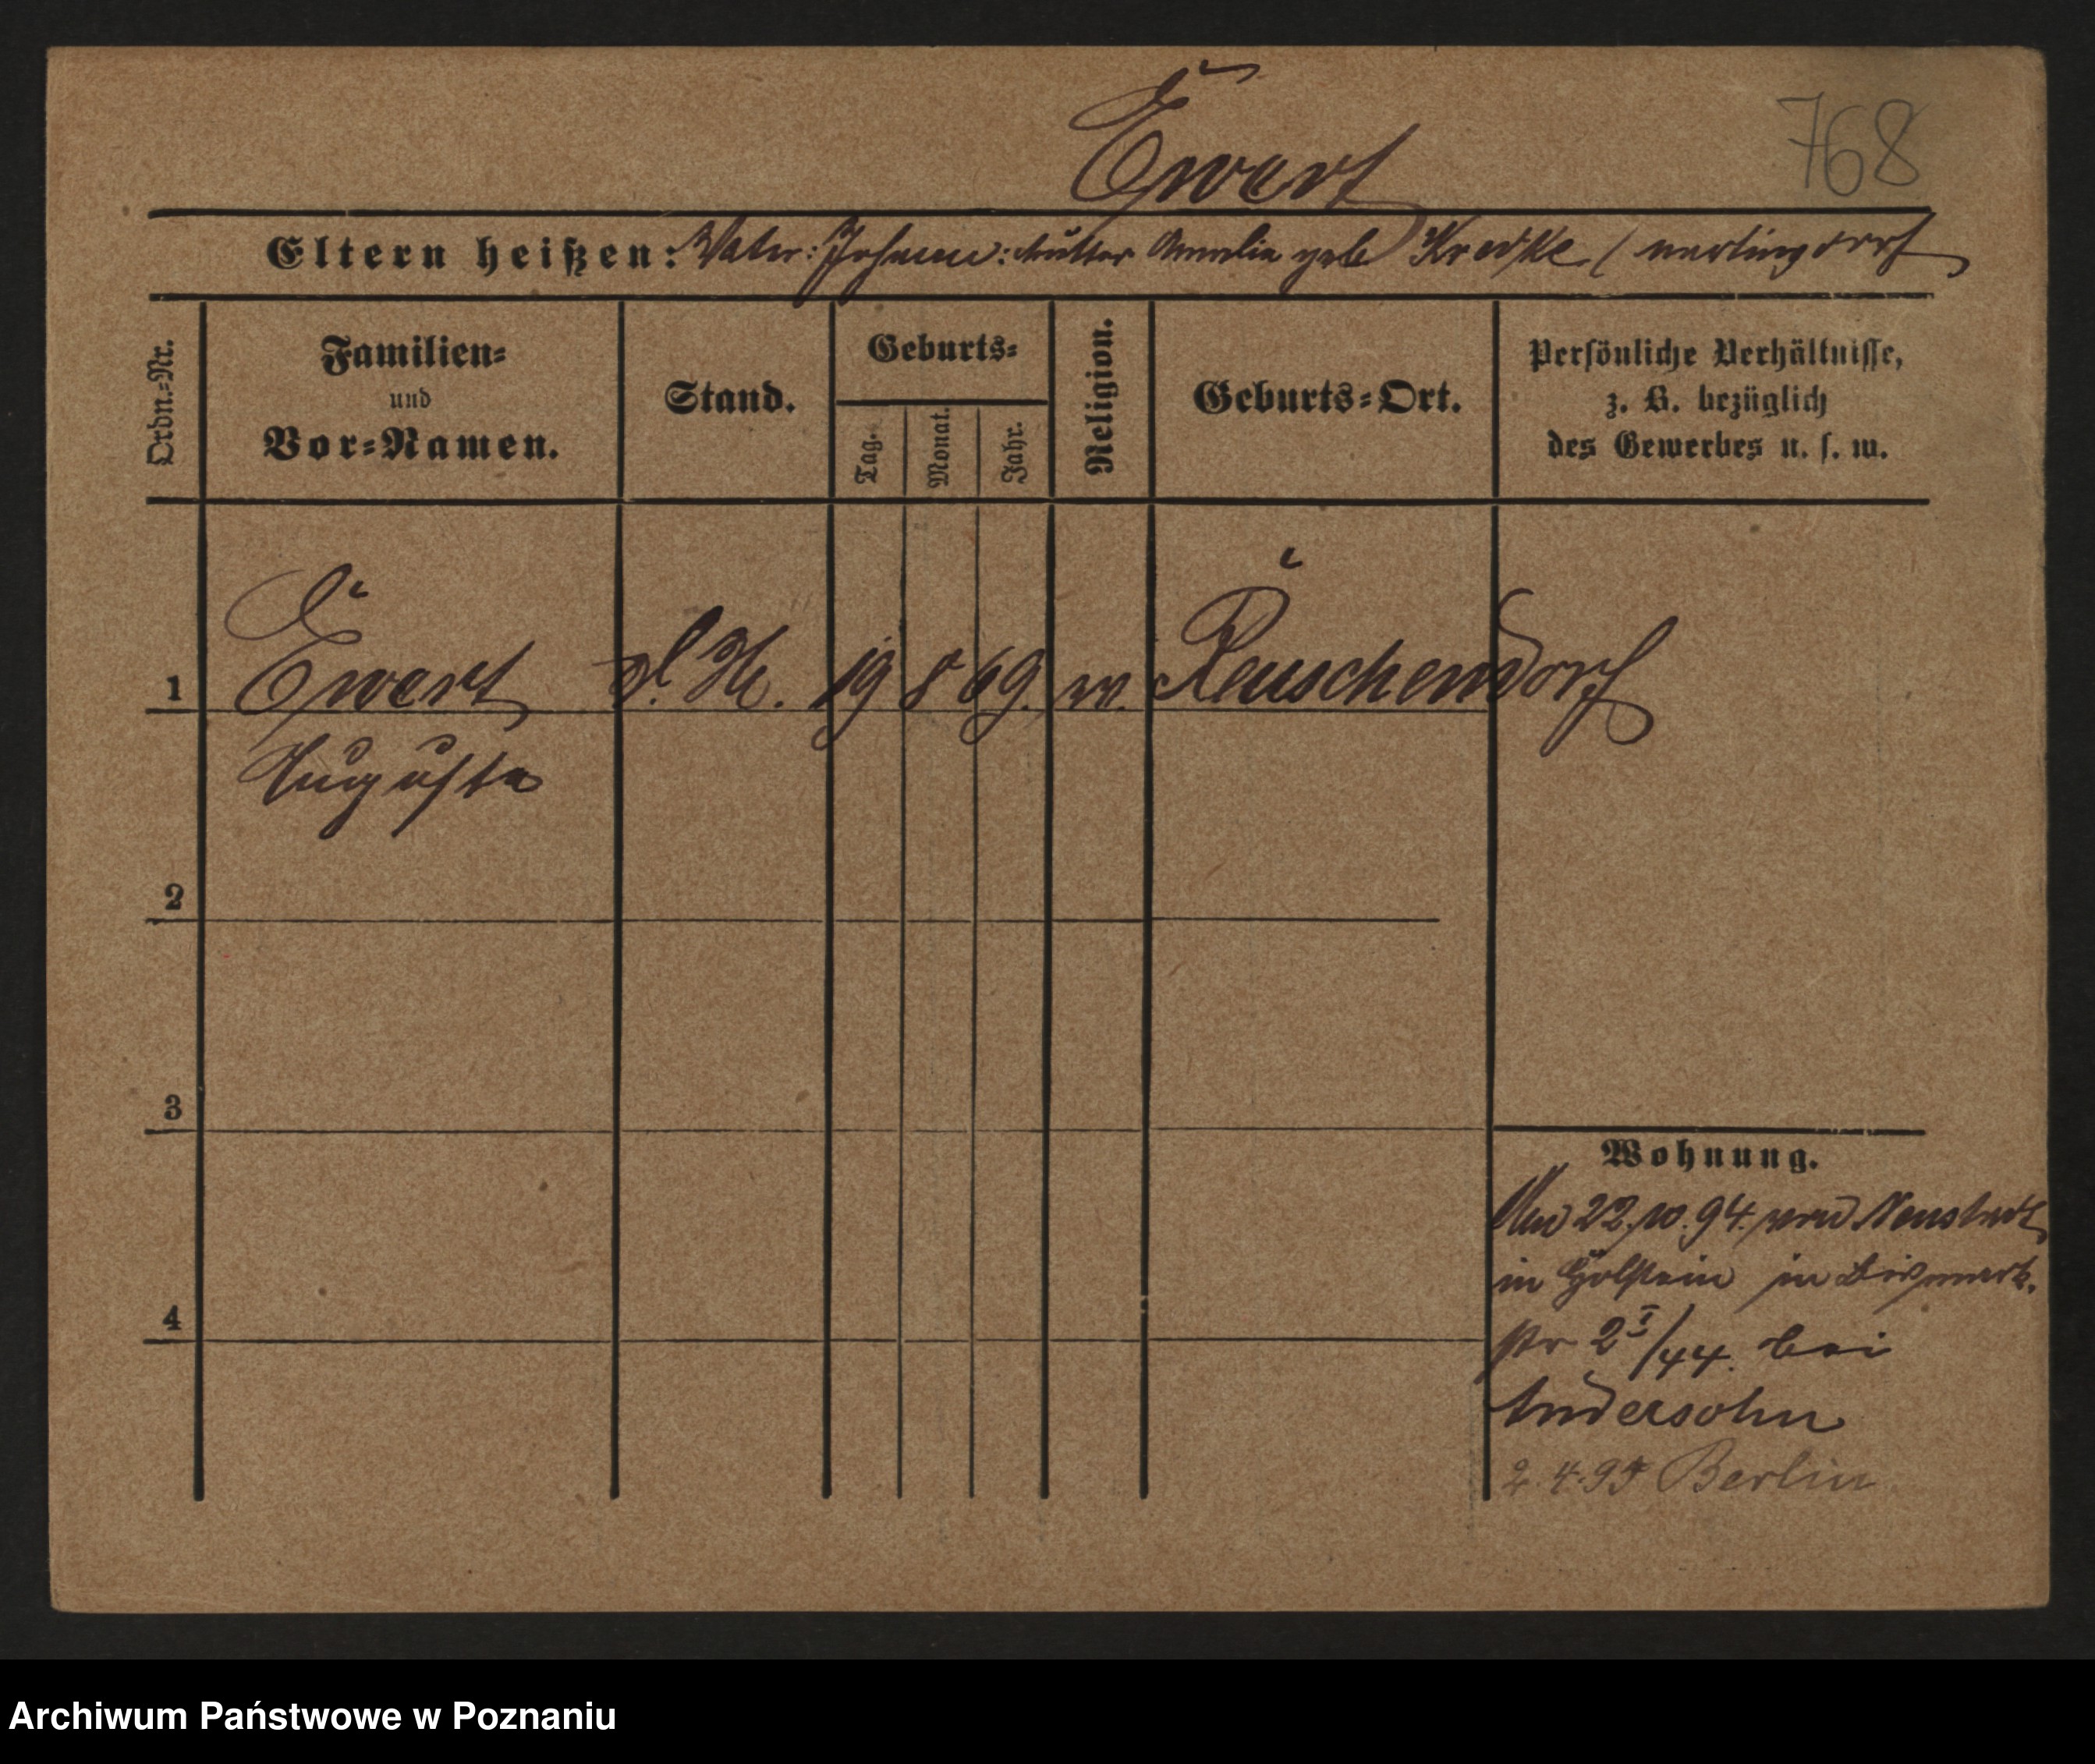 Ewert
768
Eltern heißen: Vater: Johann: Mutter Amalie geb
Ordn.=Nr.
Familien=
und
Vor=Namen.
Stand.
Geburts=
Tag.
Monat.
Jahr.
Religion.
Geburts=Ort.
Persönliche Verhältnisse,
z. B. bezüglich
des Gewerbes u. s. w.
1 Ewert 19 8 69. Reuschendorf
Auguste
2
3
4
Wohnung.
22.10.94. von Neustadt
in Holstein in Bismark.
str 2 I/44. bei
Andersohn
Berlin
Archiwum Państwowe w Poznaniu